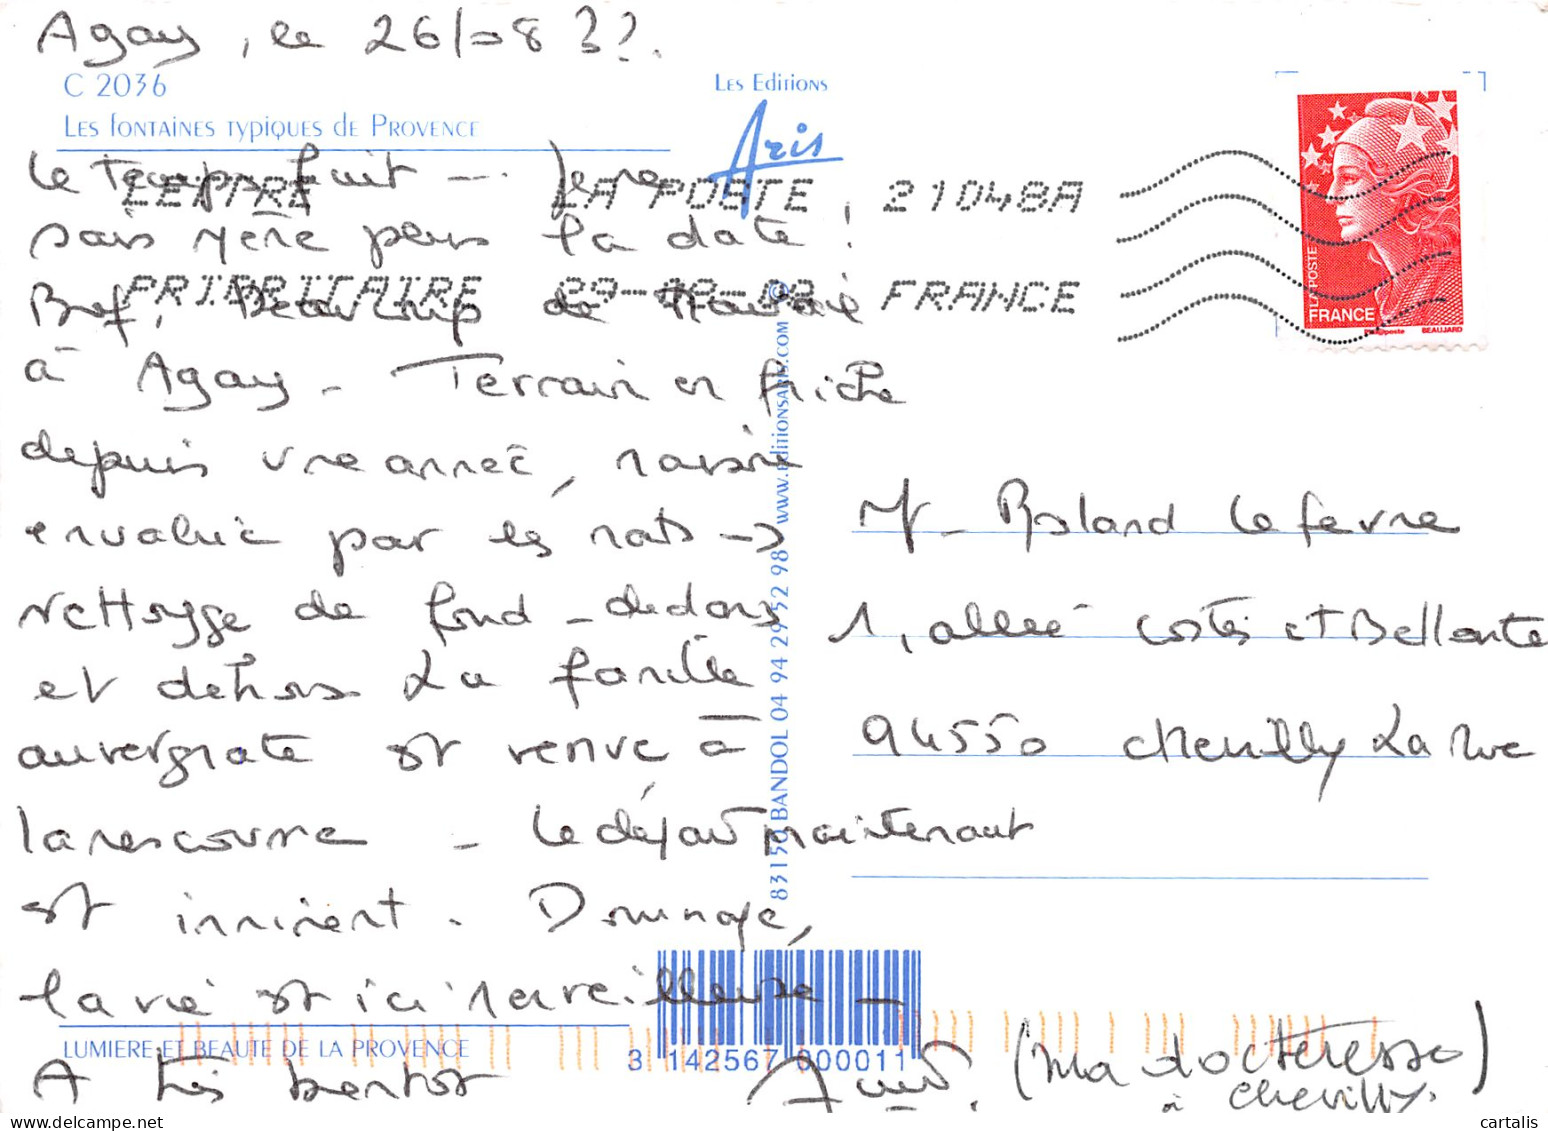 Agay, le 26/08 ??.
C 2036
Les fontaines typiques de Provence
Les Editions
Aris
le Temps fuit --- Je ne
sais même plus la date !
Bref, Beaucoup de travail
à Agay - Terrain en friche
depuis une année, maison
envahie par les rats ->
Nettoyage de fond - dedans
et dehors La famille
auvergnate est venue à
la rescousse - Le départ maintenant
est imminent. Dommage,
la vie est ici merveilleuse -
A très bientôt
(Ma doctoresse)
à Chevilly.
LETTRE LA POSTE 21048A
PRIORITAIRE FRANCE
LA POSTE
FRANCE
philaposte BEAUJARD
M. Roland Lefevre
1, allée Costes et Bellonte
94550 Chevilly La Rue
83150 BANDOL 04 94 29 52 98 www.editionsaris.com ©
LUMIERE ET BEAUTE DE LA PROVENCE
3 142567 000011
cartalis
delcampe.net